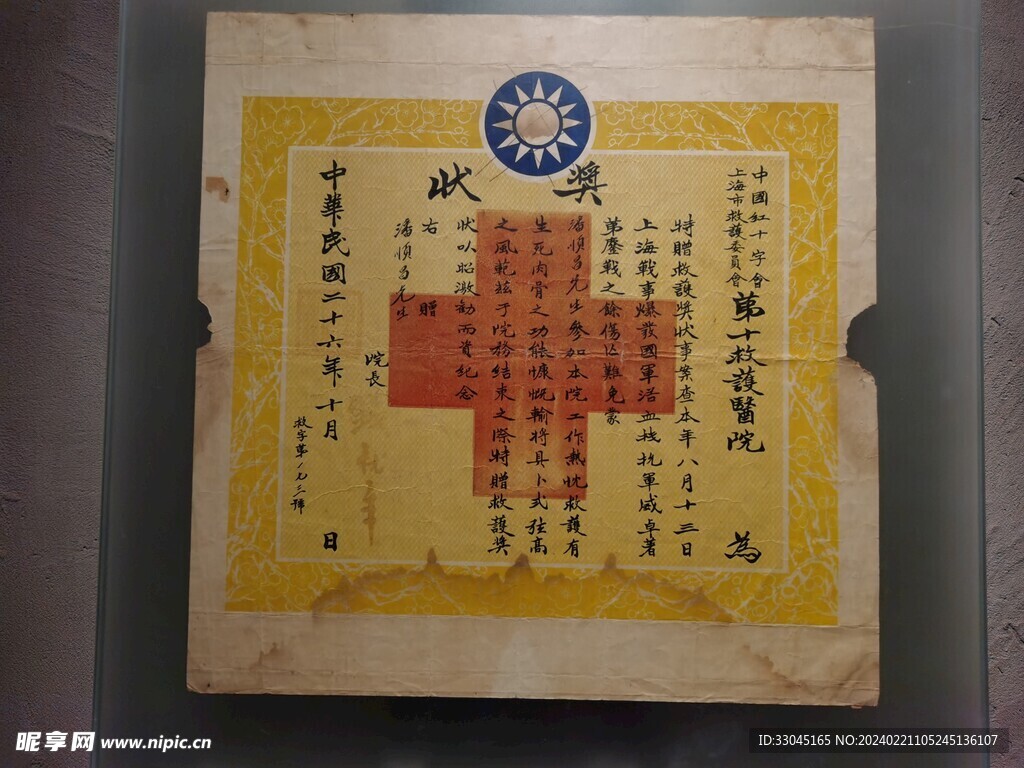 獎狀
中國紅十字會
上海市救護委員會
第十救護醫院 為
特贈救護獎狀事案查本年八月十三日
上海戰事爆發國軍浴血栈抗軍威卓著
第鏖戰之餘傷亡難免蒙
潘順昌先生參加本院工作熱忱救護有
生死肉骨之功能慷慨輸將具卜式弦高
之風範茲于院務結束之際特贈救護獎
狀以昭激勸而資紀念
右 贈
潘順昌先生
院長
中華民國二十六年十月 日
救字第 號
昵享网 www.nipic.cn
ID:33045165 NO:20240221105245136107